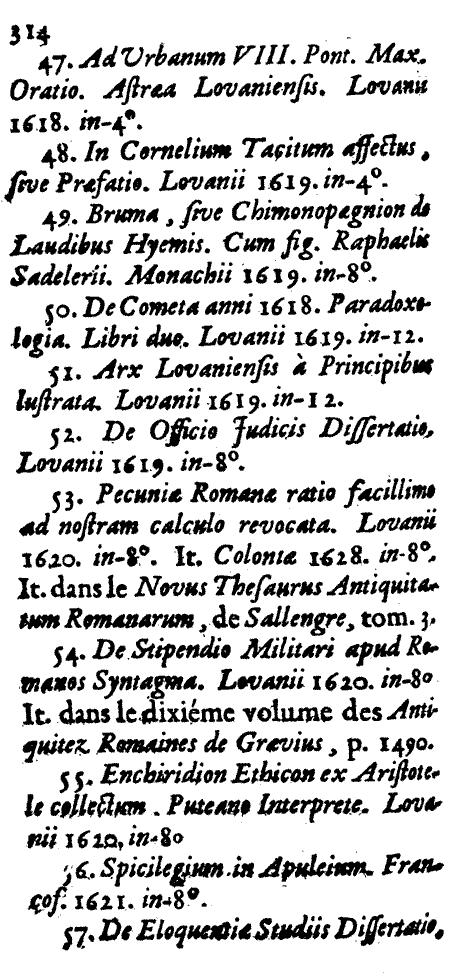 314
47. Ad Urbanum VIII. Pont. Max.
Oratio. Aſtræa Lovanienſis. Lovanii
1618. in-4°.
48. In Cornelium Tacitum affectus,
ſive Præfatio. Lovanii 1619. in-4°.
49. Bruma, ſive Chimonopægnion de
Laudibus Hyemis. Cum fig. Raphaelis
Sadelerii. Monachii 1619. in-8°.
50. De Cometa anni 1618. Paradoxo-
logia. Libri duo. Lovanii 1619. in-12.
51. Arx Lovanienſis à Principibus
luſtrata. Lovanii 1619. in-12.
52. De Officio Judicis Diſſertatio,
Lovanii 1619. in-8°.
53. Pecuniæ Romanæ ratio facillimo
ad noſtram calculo revocata. Lovanii
1620. in-8°. It. Coloniæ 1628. in-8°,
It. dans le Novus Theſaurus Antiquita-
tum Romanarum, de Sallengre, tom. 3.
54. De Stipendio Militari apud Ro-
manos Syntagma. Lovanii 1620. in-8o
It. dans le dixiéme volume des Anti-
quitez Romaines de Grævius, p. 1490.
55. Enchiridion Ethicon ex Ariſtote-
le collectum. Puteano Interprete. Lova-
nii 1620, in-8o
56. Spicilegium in Apuleium. Fran-
cof. 1621. in-8°.
57. De Eloquentiæ Studiis Diſſertatio,